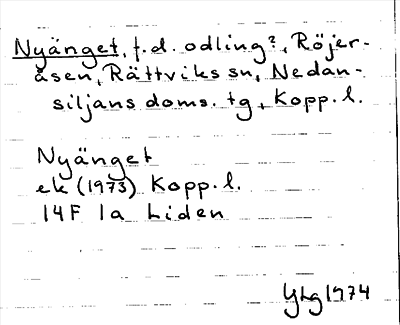 Nyänget, f.d. odling?, Röjer-
åsen, Rättviks sn, Nedan-
siljans doms. tg, Kopp. l.
Nyänget
ek (1973) Kopp. l.
14F 1a Liden
YLg 1974